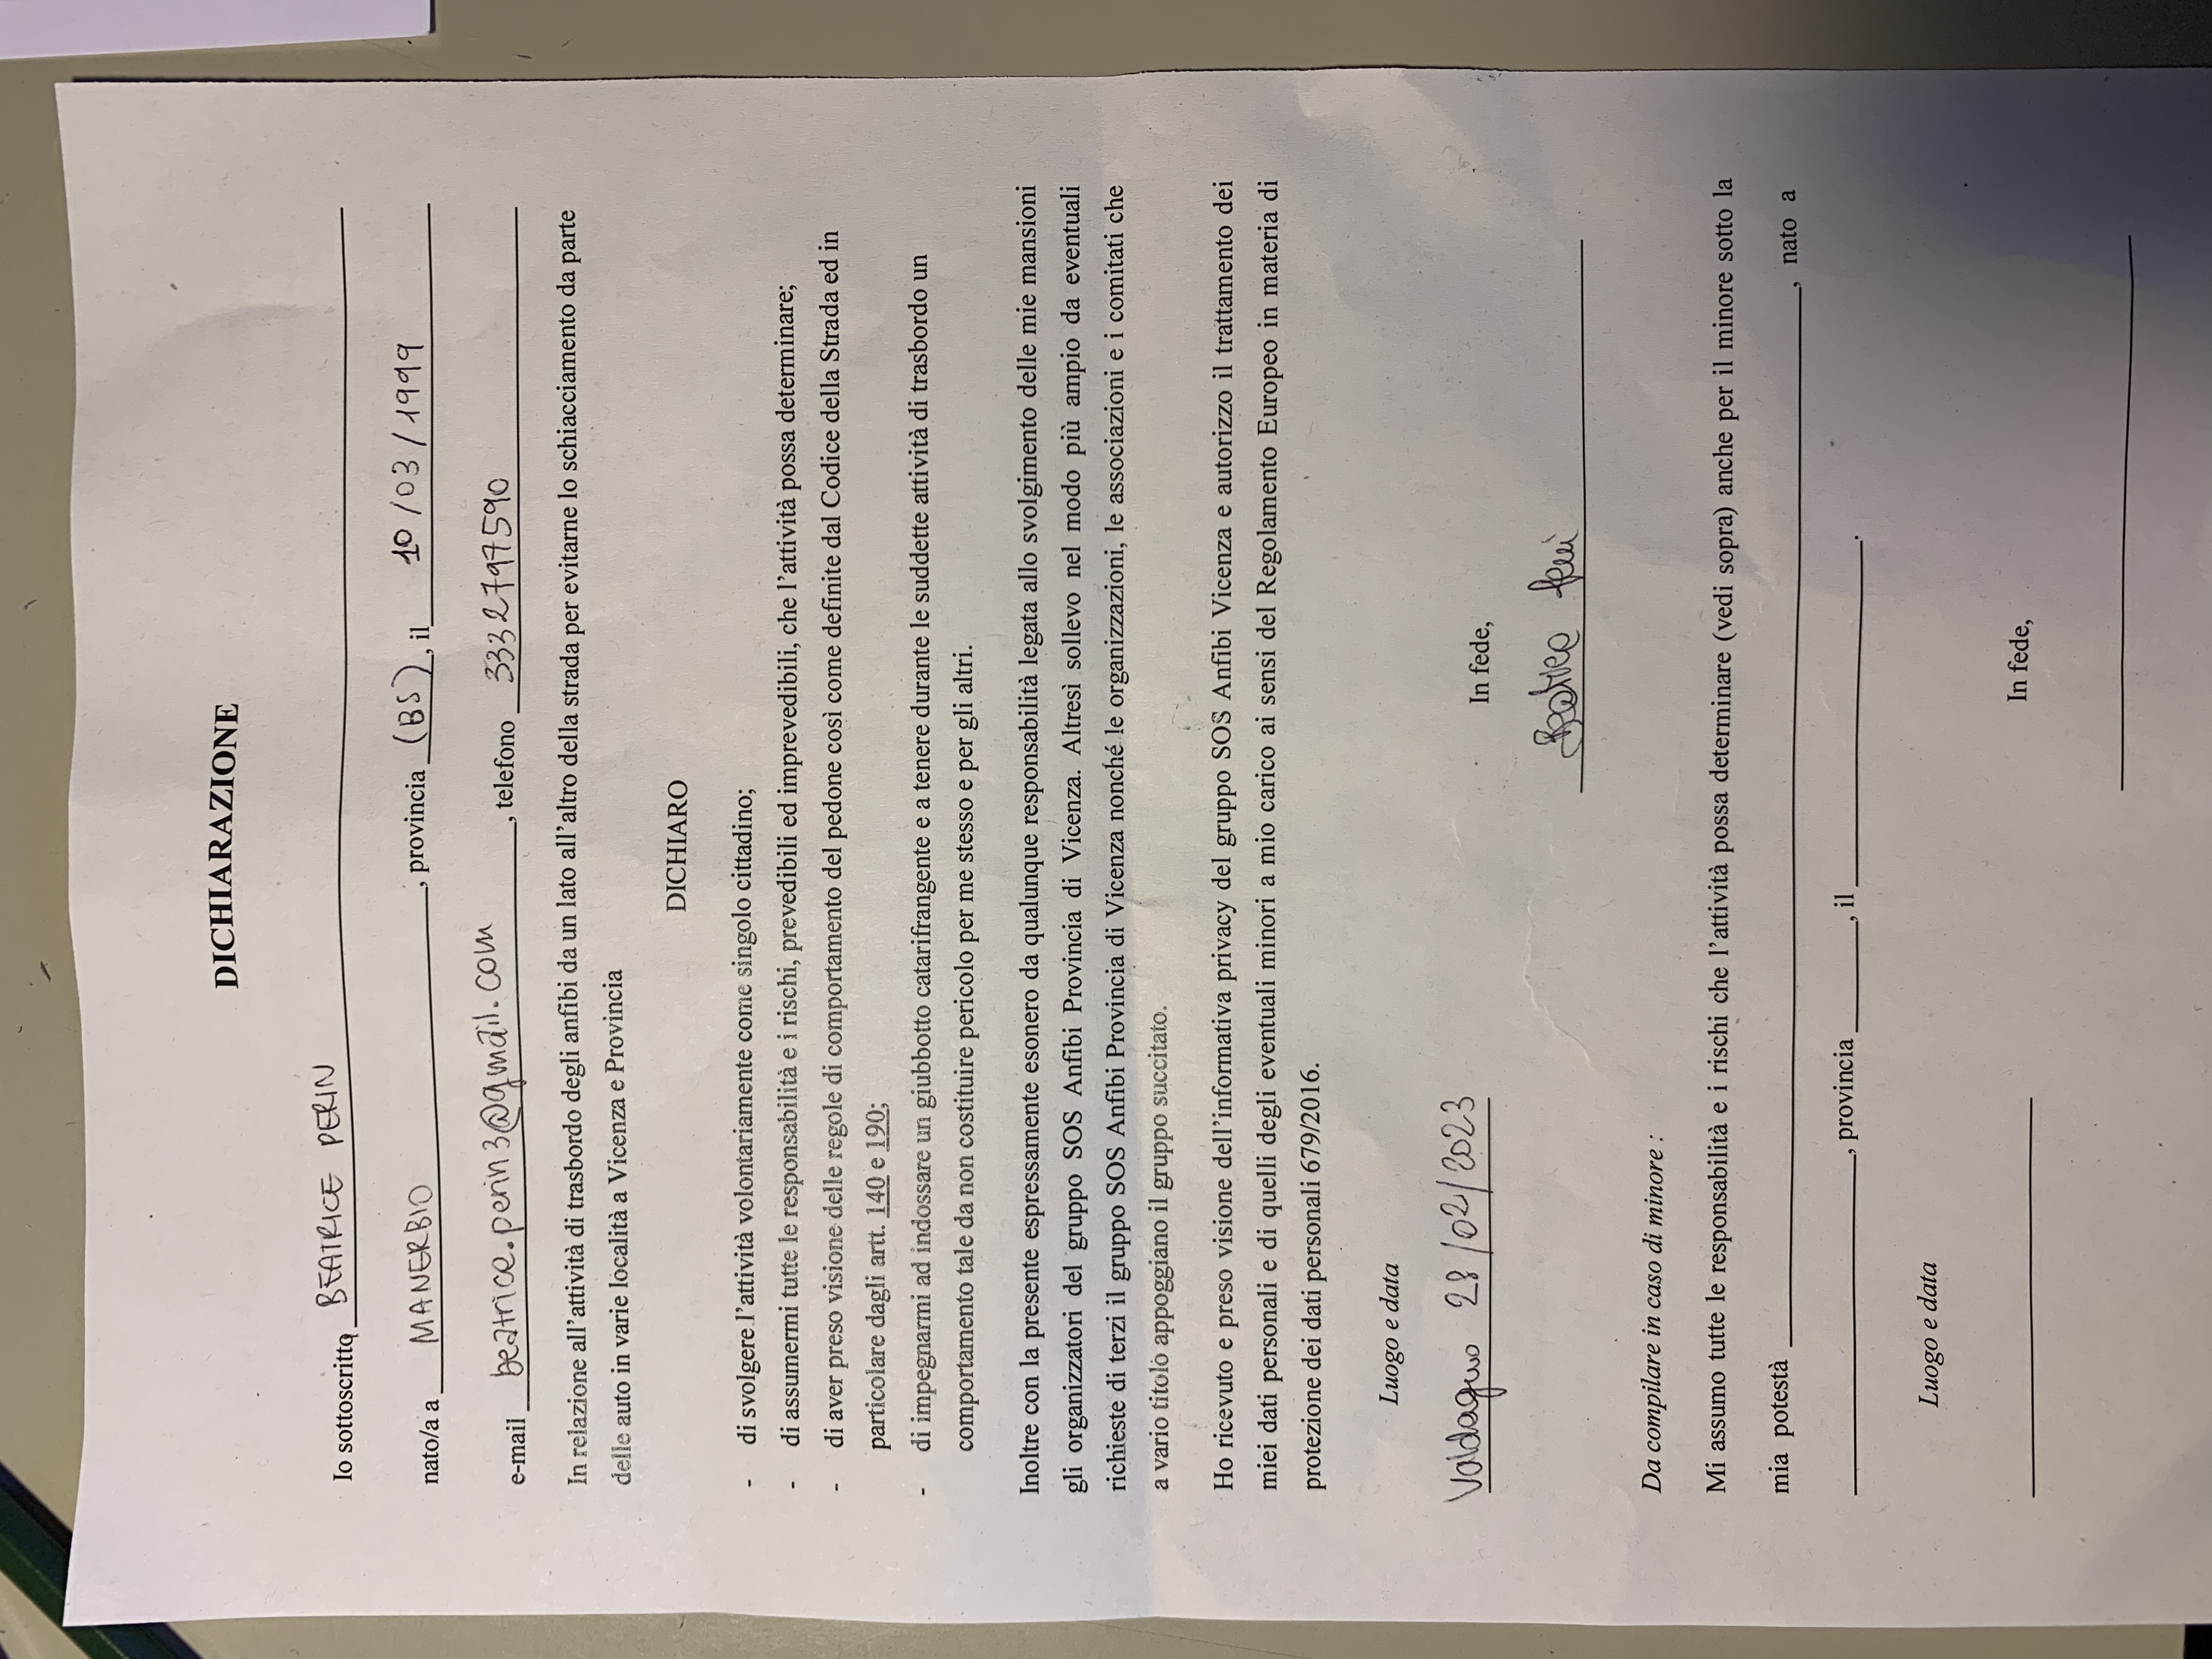 DICHIARAZIONE
Io sottoscritto BEATRICE PERIN
nato/a a MANERBIO, provincia (BS), il 10/03/1999
e-mail beatrice.perin3@gmail.com, telefono 3332797590
In relazione all'attività di trasbordo degli anfibi da un lato all'altro della strada per evitarne lo schiacciamento da parte
delle auto in varie località a Vicenza e Provincia
DICHIARO
- di svolgere l'attività volontariamente come singolo cittadino;
- di assumermi tutte le responsabilità e i rischi, prevedibili ed imprevedibili, che l'attività possa determinare;
- di aver preso visione delle regole di comportamento del pedone così come definite dal Codice della Strada ed in
particolare dagli artt. 140 e 190;
- di impegnarmi ad indossare un giubbotto catarifrangente e a tenere durante le suddette attività di trasbordo un
comportamento tale da non costituire pericolo per me stesso e per gli altri.
Inoltre con la presente espressamente esonero da qualunque responsabilità legata allo svolgimento delle mie mansioni
gli organizzatori del gruppo SOS Anfibi Provincia di Vicenza. Altresì sollevo nel modo più ampio da eventuali
richieste di terzi il gruppo SOS Anfibi Provincia di Vicenza nonché le organizzazioni, le associazioni e i comitati che
a vario titolo appoggiano il gruppo succitato.
Ho ricevuto e preso visione dell'informativa privacy del gruppo SOS Anfibi Vicenza e autorizzo il trattamento dei
miei dati personali e di quelli degli eventuali minori a mio carico ai sensi del Regolamento Europeo in materia di
protezione dei dati personali 679/2016.
Luogo e data
Valdagno 28/02/2023
In fede,
Beatrice Perin
Da compilare in caso di minore :
Mi assumo tutte le responsabilità e i rischi che l'attività possa determinare (vedi sopra) anche per il minore sotto la
mia potestà , nato a
, provincia , il .
Luogo e data
In fede,